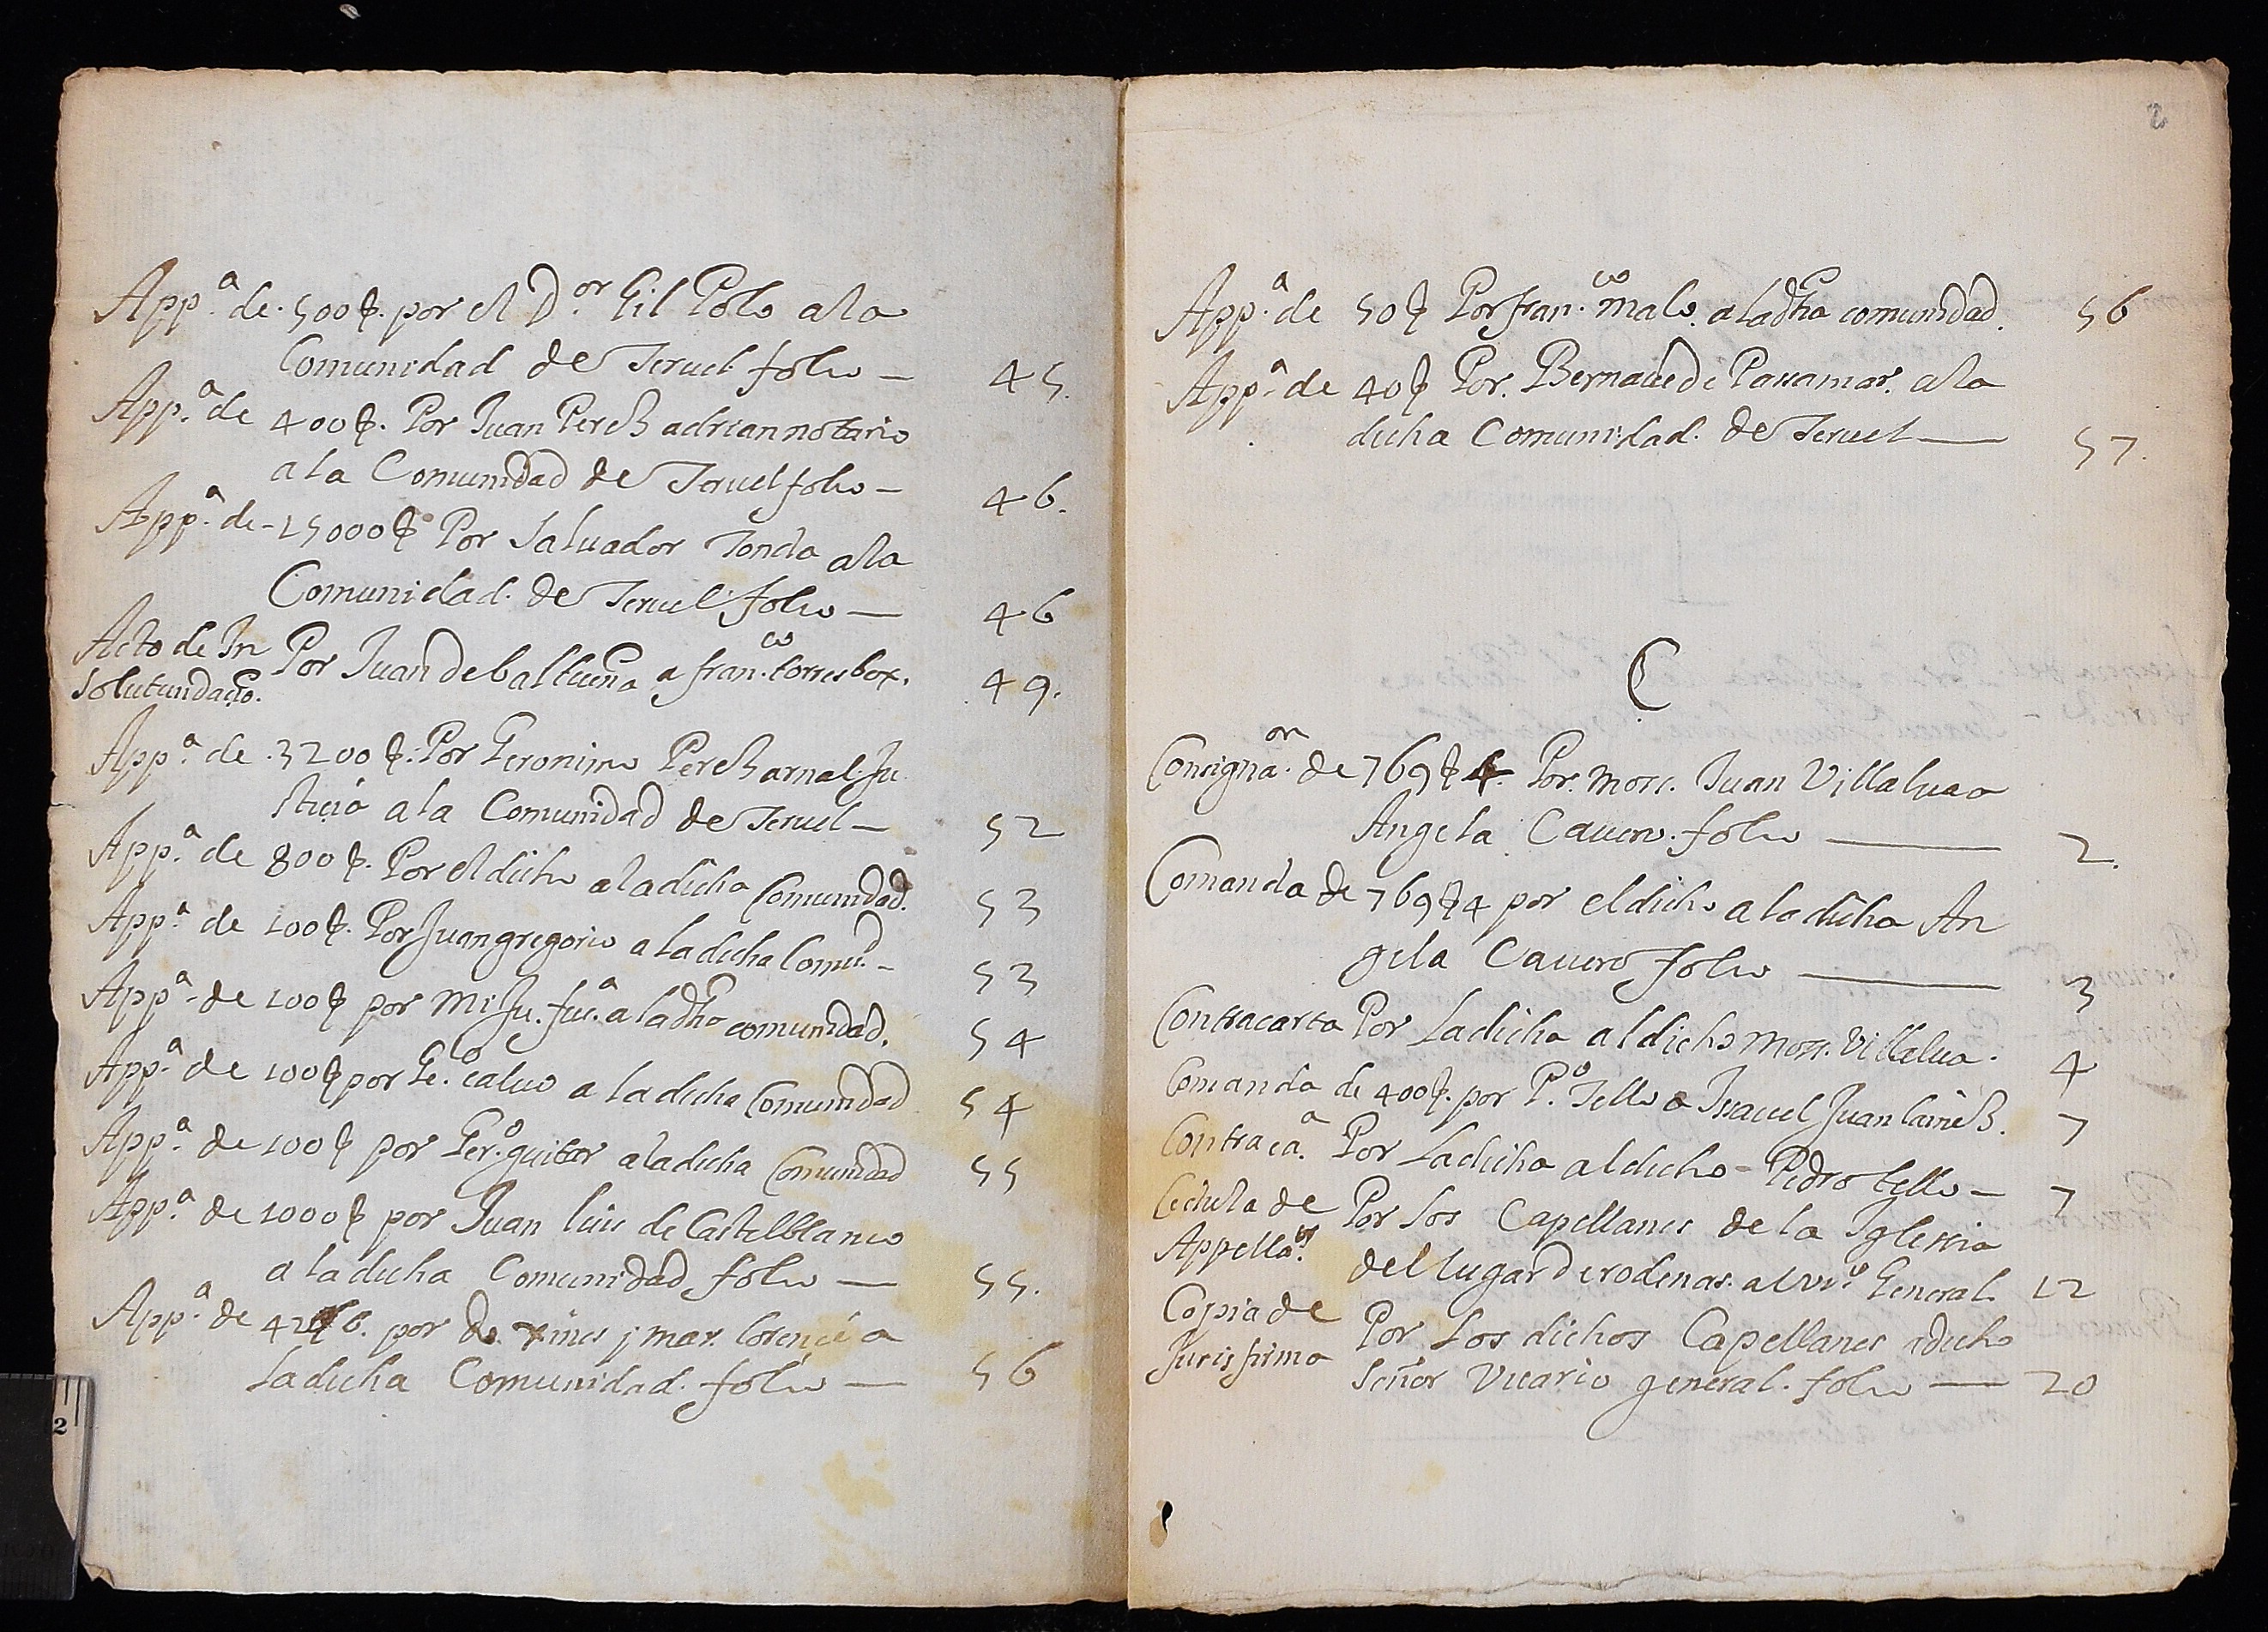 App.ª de. 500 ₺. por el D.or Gil Polo ala
Comunidad de Teruel folio — 45.
App.ª de 400 ₺. Por Juan Perez adrian notario
ala Comunidad de Teruel folio — 46.
App.ª de - 15000 ₺ Por Saluador ala
Comunidad. de Teruel folio — 46
Acto de In
solutundaçio. Por Juan de a fran.co torres 49.
App.ª de .3200 ₺. Por Geronimo Perez arnal Ju
stiçia ala Comunidad de Teruel — 52
App.ª de 800 ₺. Por el dicho ala dicha Comunidad. 53
App.ª de 100 ₺. Por Juan gregorio ala dicha Comud. — 53
App.ª de 100 ₺ por ala dha comunidad. 54
App.ª de 100 ₺ por caluo ala dicha Comunidad 54
App.ª de 100 ₺ por Ger.o guitar ala dicha Comunidad 55
App.ª de 1000 ₺ por Juan luis de Castelblanco
ala dicha Comunidad folio — 55.
App.ª de por
la dicha Comunidad. folio — 56
2
App.ª de 50 ₺ Por fran.co malo. ala dha comunidad. 56
App.ª de 40 ₺ Por. Bernaue de Passamar. ala
dicha Comunidad. de Teruel — 57.
C
Consigna.on de 769 ₺ 4. Por. moss. Juan Villalua a
Angela Cauero. folio — 2.
Comanda de 769 ₺ 4 por el dicho ala dicha An
gela Cauero folio — 3
Contracarta Por La dicha al dicho moss. Villalua. 4
Comanda de 400 ₺. por P.o Tello a Issauel Juan lainez. 7
Contraca.ª Por La dicha al dicho - Pedro tello — 7
Cedula de Por los Capellanes de la Iglessia
Appella.on del lugar de rodenas. al vi.o General. 12
Copia de Por Los dichos Capellanes a dicho
Juris firma señor Vicario general. folio — 20
2